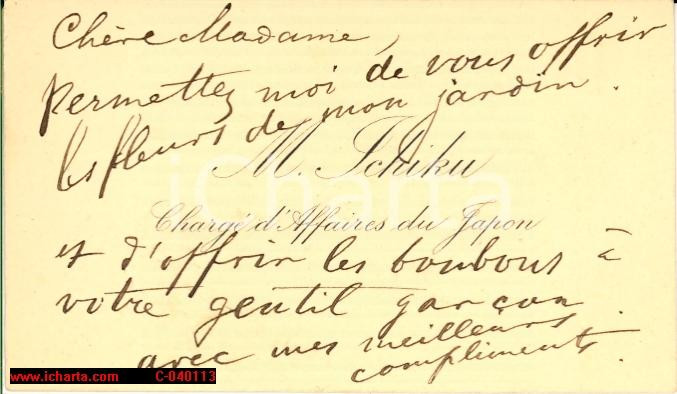 Chère Madame,
Permettez moi de vous offrir
les fleurs de mon jardin.
M. Ichiku
Chargé d'Affaires du Japon
et d'offrir les bonbons à
votre gentil garçon
avec mes meilleurs
compliments.
iCharta
www.icharta.com C-040113